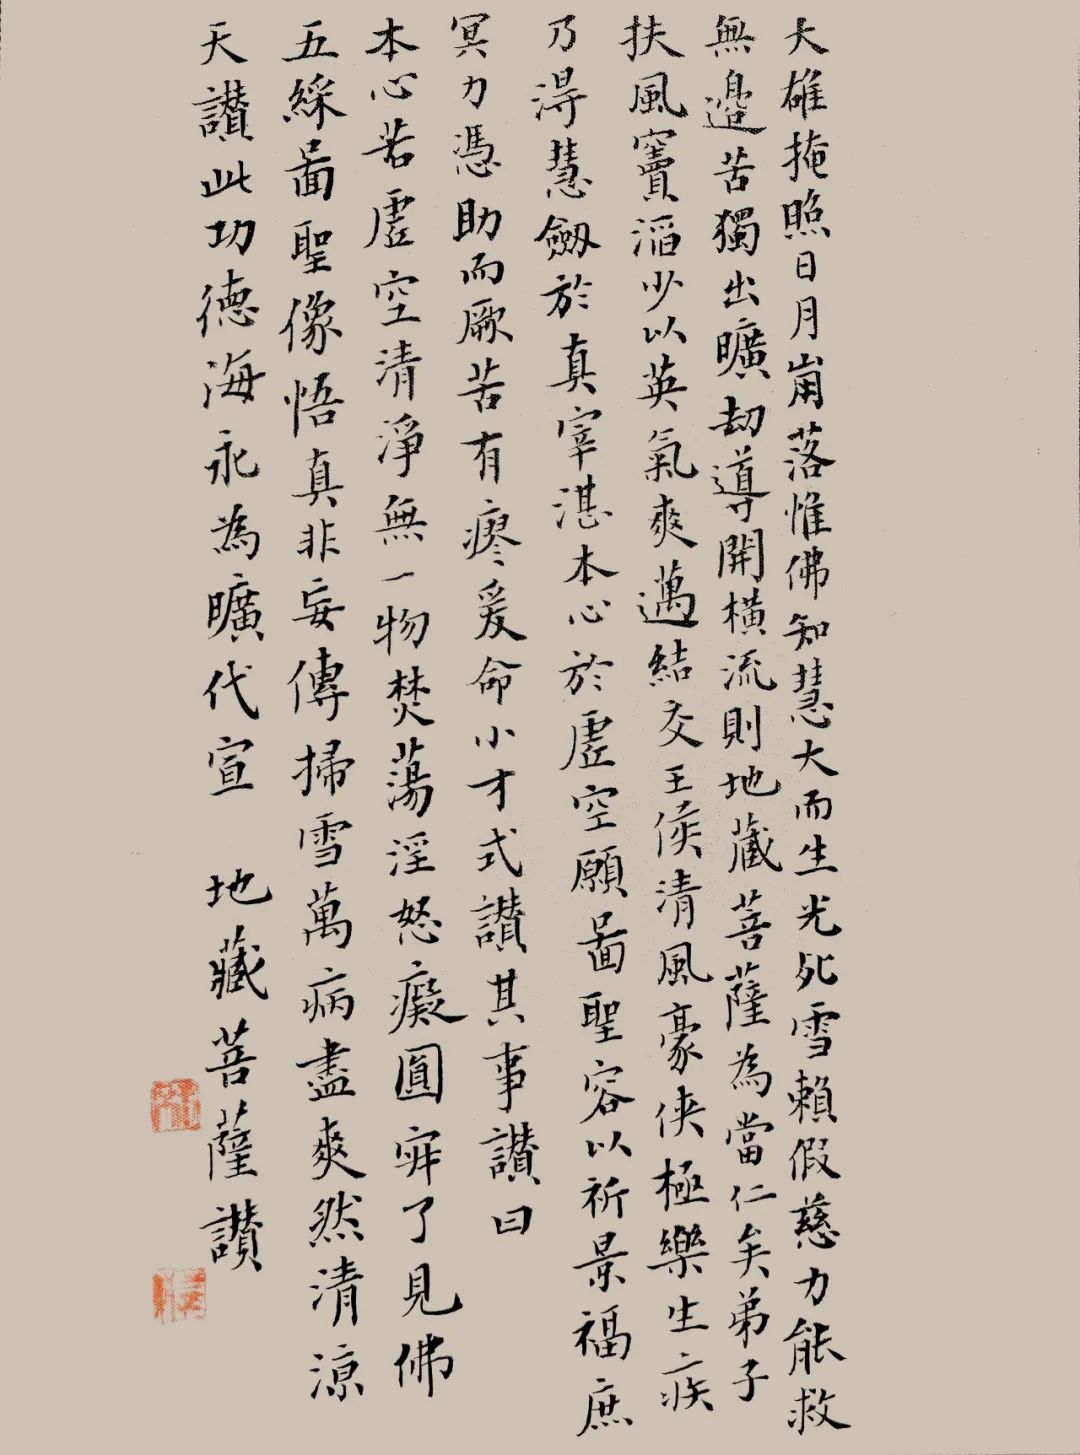 大雄掩照日月崩落惟佛知慧大而生光死雪賴假慈力能救
無邊苦獨出曠劫導開橫流則地藏菩薩為當仁矣弟子
扶風竇滔少以英氣爽邁結交王侯清風豪俠極樂生疾
乃得慧劒於真宰湛本心於虛空願啚聖容以祈景福庶
冥力憑助而厥苦有瘳爰命小才式讃其事讃曰
本心若虛空清淨無一物焚蕩淫怒癡圓寂了見佛
五綵啚聖像悟真非妄傳掃雪萬病盡爽然清涼
天讃此功德海永為曠代宣 地藏菩薩讃